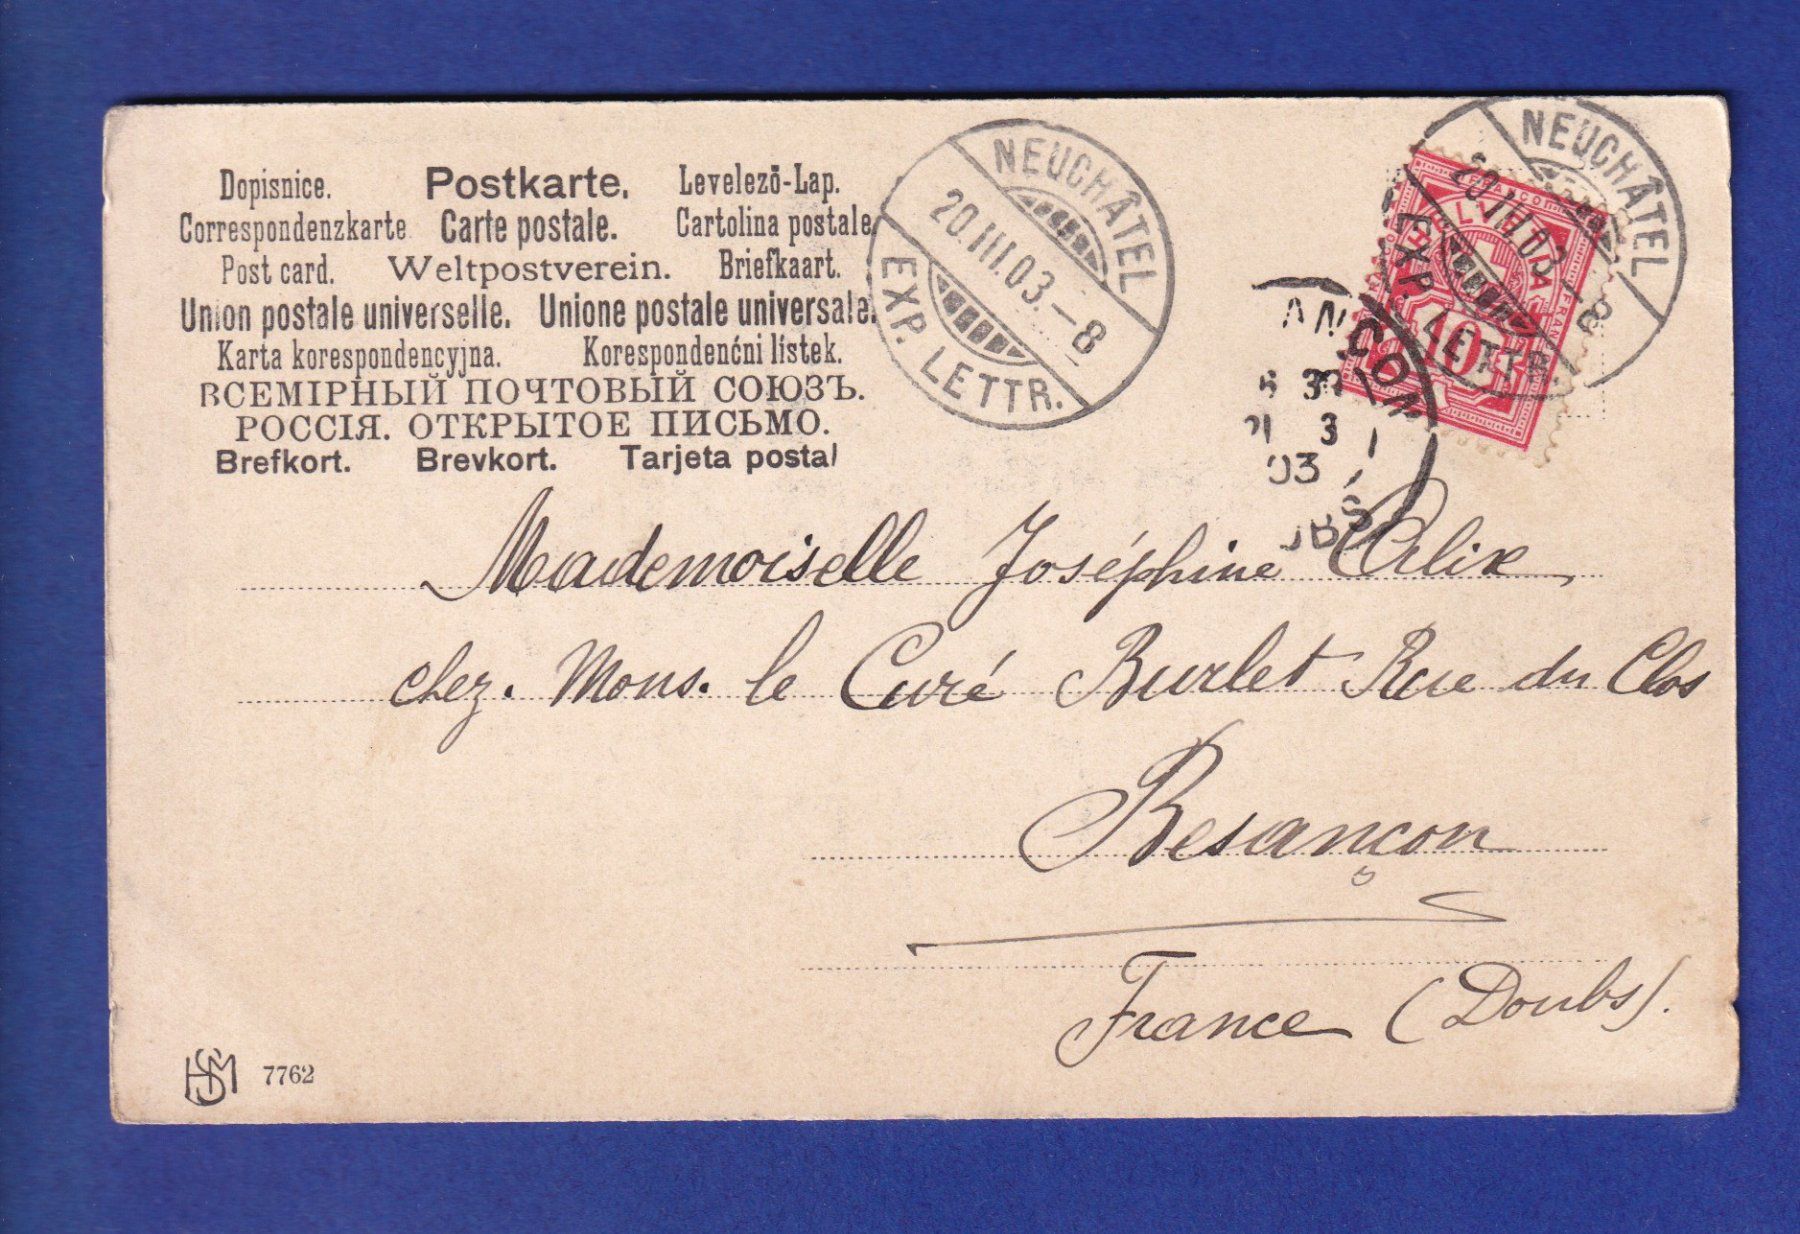 Dopisnice. Postkarte. Levelezō-Lap.
Correspondenzkarte Carte postale. Cartolina postale.
Post card. Weltpostverein. Briefkaart.
Union postale universelle. Unione postale universale.
Karta korespondencyjna. Korespondenćni lístek.
ВСЕМІРНЫЙ ПОЧТОВЫЙ СОЮЗЪ.
РОССІЯ. ОТКРЫТОЕ ПИСЬМО.
Brefkort. Brevkort. Tarjeta postal
NEUCHÂTEL
20.III.03.–8
EXP. LETTR.
NEUCHÂTEL
20.III.03–8
EXP. LETTR.
10
FRANCO
3
03
Mademoiselle Joséphine
chez. Mons. le Curé Burlet Rue du Clos
Besançon
France (Doubs).
HSM 7762